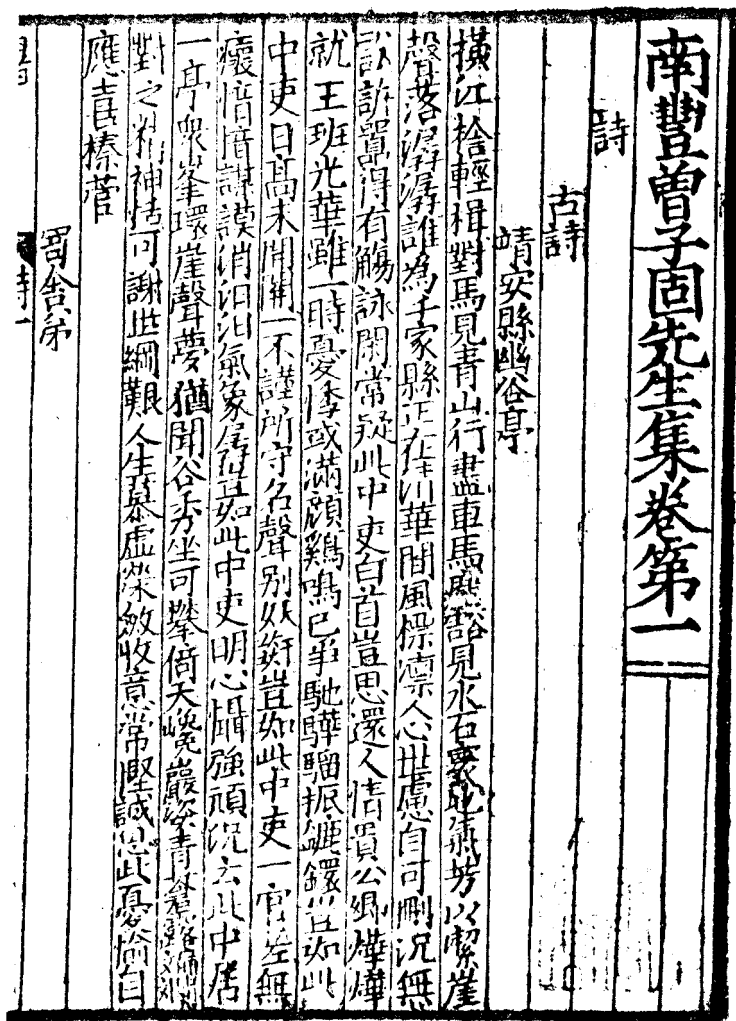 南豐曾子固先生集卷第一
詩
古詩
靖安縣幽谷亭
橫江捨輕楫對馬見青山行盡車馬塵豁見水石寰地氣方以潔崖
聲落潺潺誰為千家縣正在清華間風標凛人心世慮自可刪況無
訟訴囂得有觴詠閑常疑此中吏白首豈思還人情貴公卿燁燁
就王班光華雖一時憂悸或滿顏雞鳴已爭馳驊騮振鑣鐶豈如此
中吏日高未開關一不謹所守名聲別妖姦豈如此中吏一官無
癏愔愔謀謨消汩汩氣象孱豈如此中吏明心懾強頑況云此中居
一亭衆峯環崖聲夢猶聞谷秀坐可攀倚天巉巖姿青
對之精神恬可謝世網艱人生慕虛榮斂收意常慳誠思此憂愉自
應喜榛菅
寄舍弟
詩一